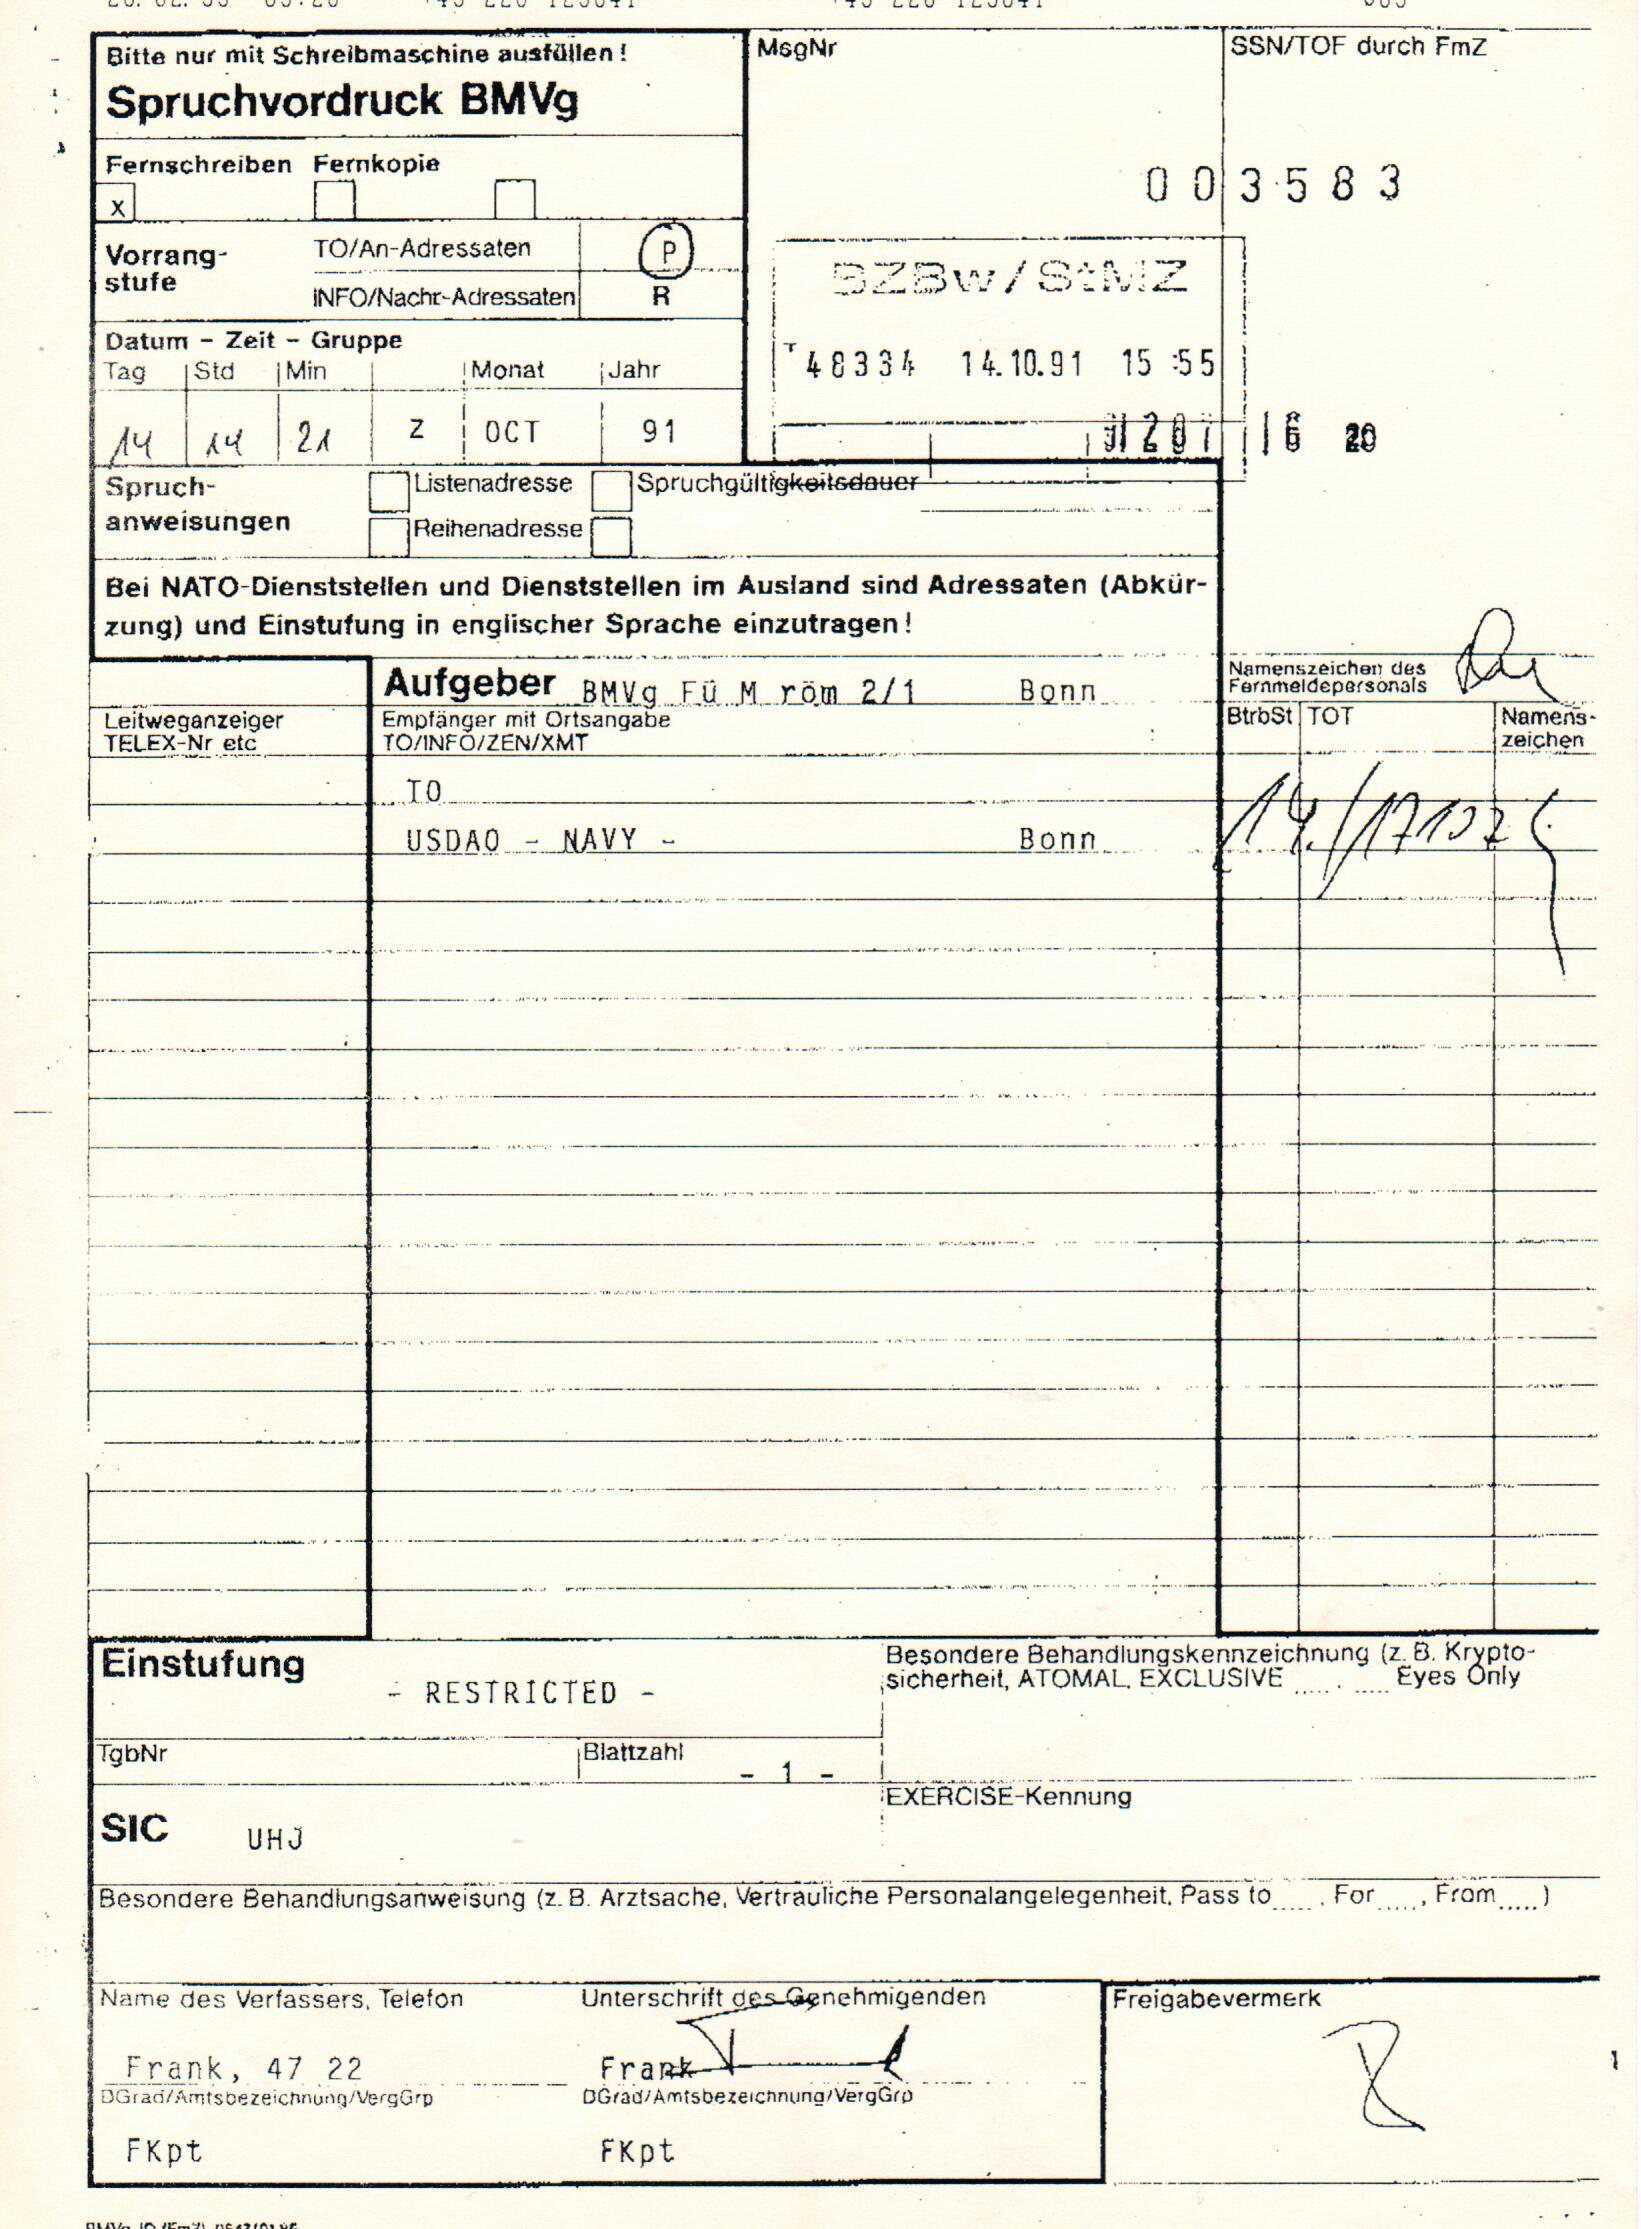 Bitte nur mit Schreibmaschine ausfüllen!
Spruchvordruck BMVg
MsgNr
SSN/TOF durch FmZ
Fernschreiben Fernkopie
x
003583
Vorrang-
stufe
TO/An-Adressaten P
INFO/Nachr-Adressaten R
BZBw/StMZ
48334 14.10.91 15:55
Datum - Zeit - Gruppe
Tag Std Min Monat Jahr
14 14 21 Z OCT 91
16 20
Spruch-
anweisungen
Listenadresse Spruchgültigkeitsdauer
Reihenadresse
Bei NATO-Dienststellen und Dienststellen im Ausland sind Adressaten (Abkür-
zung) und Einstufung in englischer Sprache einzutragen!
Aufgeber BMVg Fü M röm 2/1 Bonn
Namenszeichen des
Fernmeldepersonals
Leitweganzeiger
TELEX-Nr etc
Empfänger mit Ortsangabe
TO/INFO/ZEN/XMT
BtrbSt TOT Namens-
zeichen
TO
USDAO - NAVY - Bonn
Einstufung
- RESTRICTED -
Besondere Behandlungskennzeichnung (z. B. Krypto-
sicherheit, ATOMAL, EXCLUSIVE ..... , ..... Eyes Only
TgbNr
Blattzahl
- 1 -
EXERCISE-Kennung
SIC UHJ
Besondere Behandlungsanweisung (z. B. Arztsache, Vertrauliche Personalangelegenheit, Pass to ..... , For ..... , From ..... )
Name des Verfassers, Telefon
Unterschrift des Genehmigenden
Freigabevermerk
Frank, 47 22
Frank
DGrad/Amtsbezeichnung/VergGrp
DGrad/Amtsbezeichnung/VergGrp
FKpt
FKpt